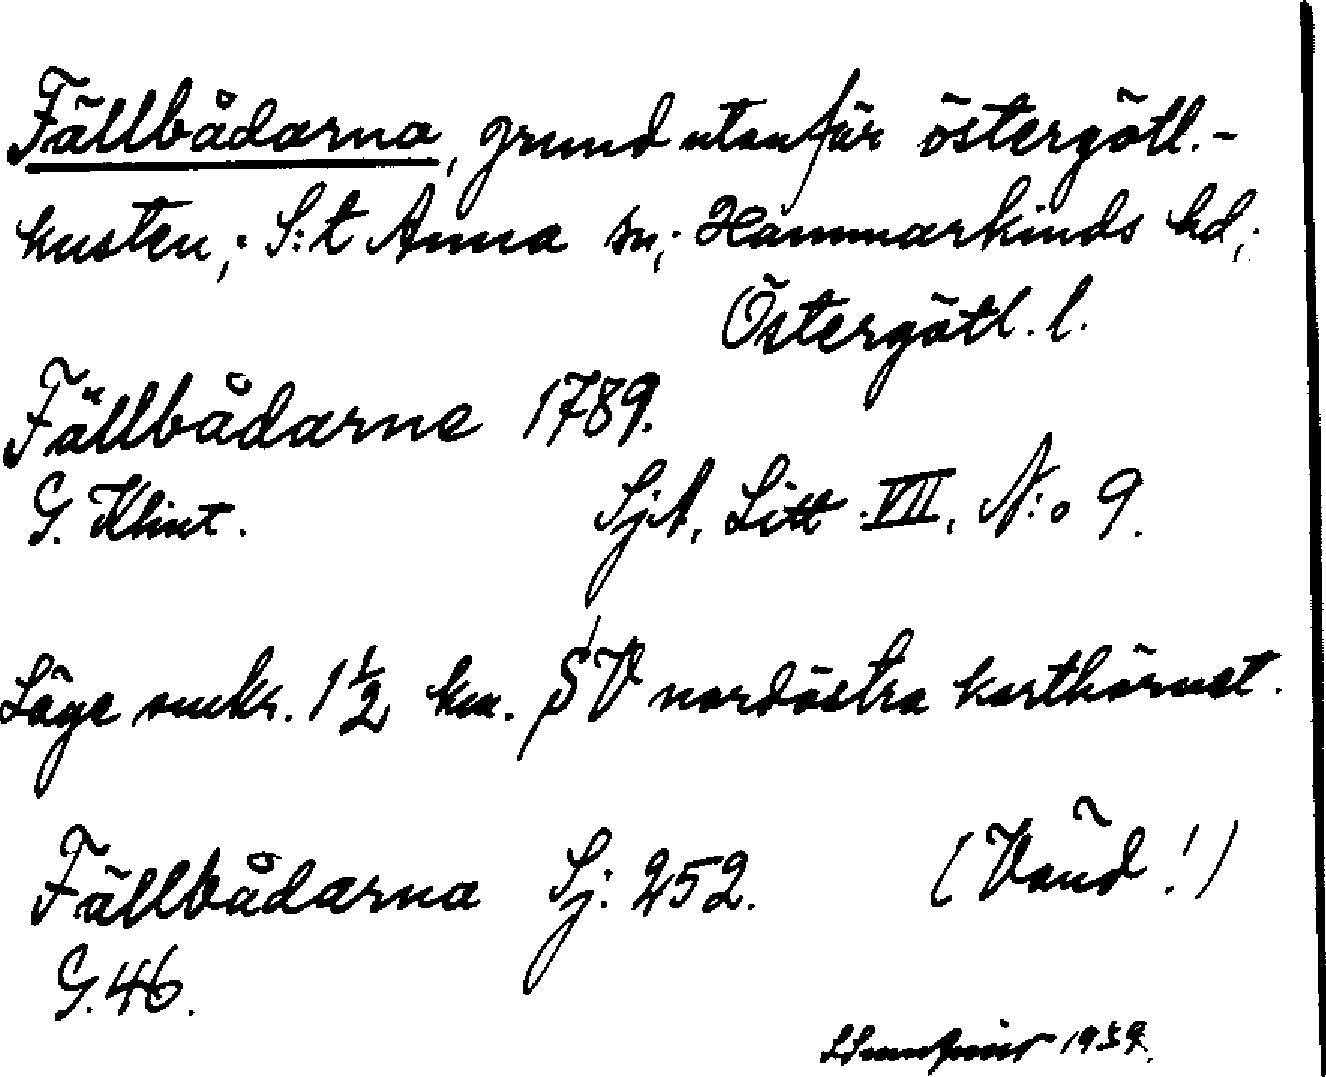 Fällbådarna, grund utanför östergötl.-
kusten; S:t Anna sn; Hammarkinds hd;
Östergötl. l.
Fällbådarne 1789.
G. Klint. SjA, Litt. VII, N:o 9.
Läge omkr. 1½ km. SV nordöstra karthörnet.
Fällbådarna Sj: 252. (Vänd!)
G. 46.
1959.